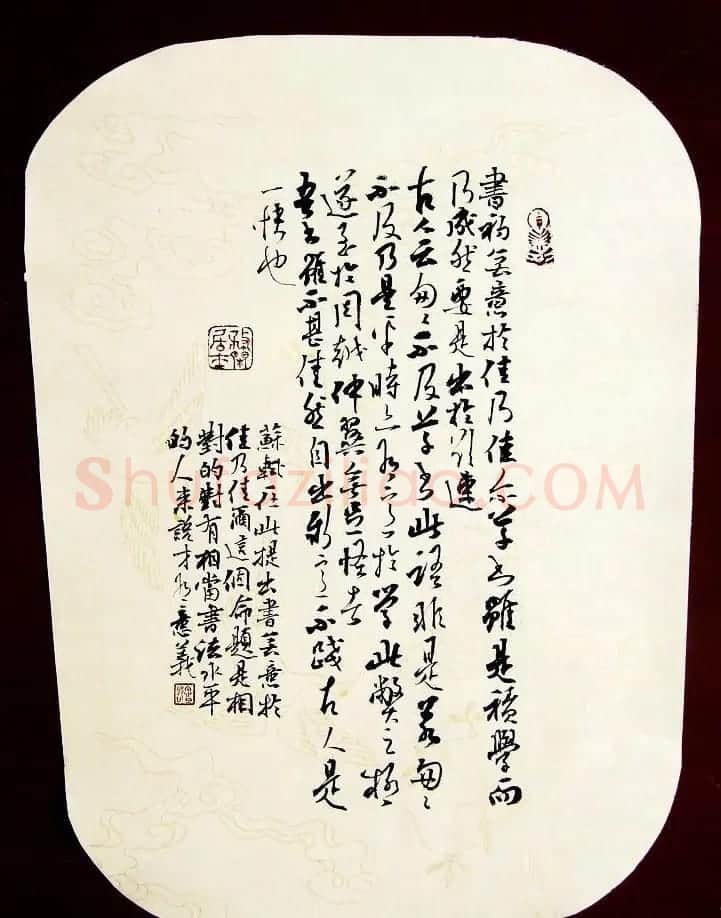 書初無意於佳乃佳尔草书雖是積學而
乃成然要是出於欲速
古人云匆〻不及草书此語非是若匆〻
不及乃是平時亦有意於学此弊之極
遂至於周越仲翼無足怪者
吾书雖不甚佳然自出新意不踐古人是
一快也
蘇軾在此提出書無意於
佳乃佳爾這個命題是相
對的對有相當書法水平
的人來說才有意義
Shufaziliao.COM